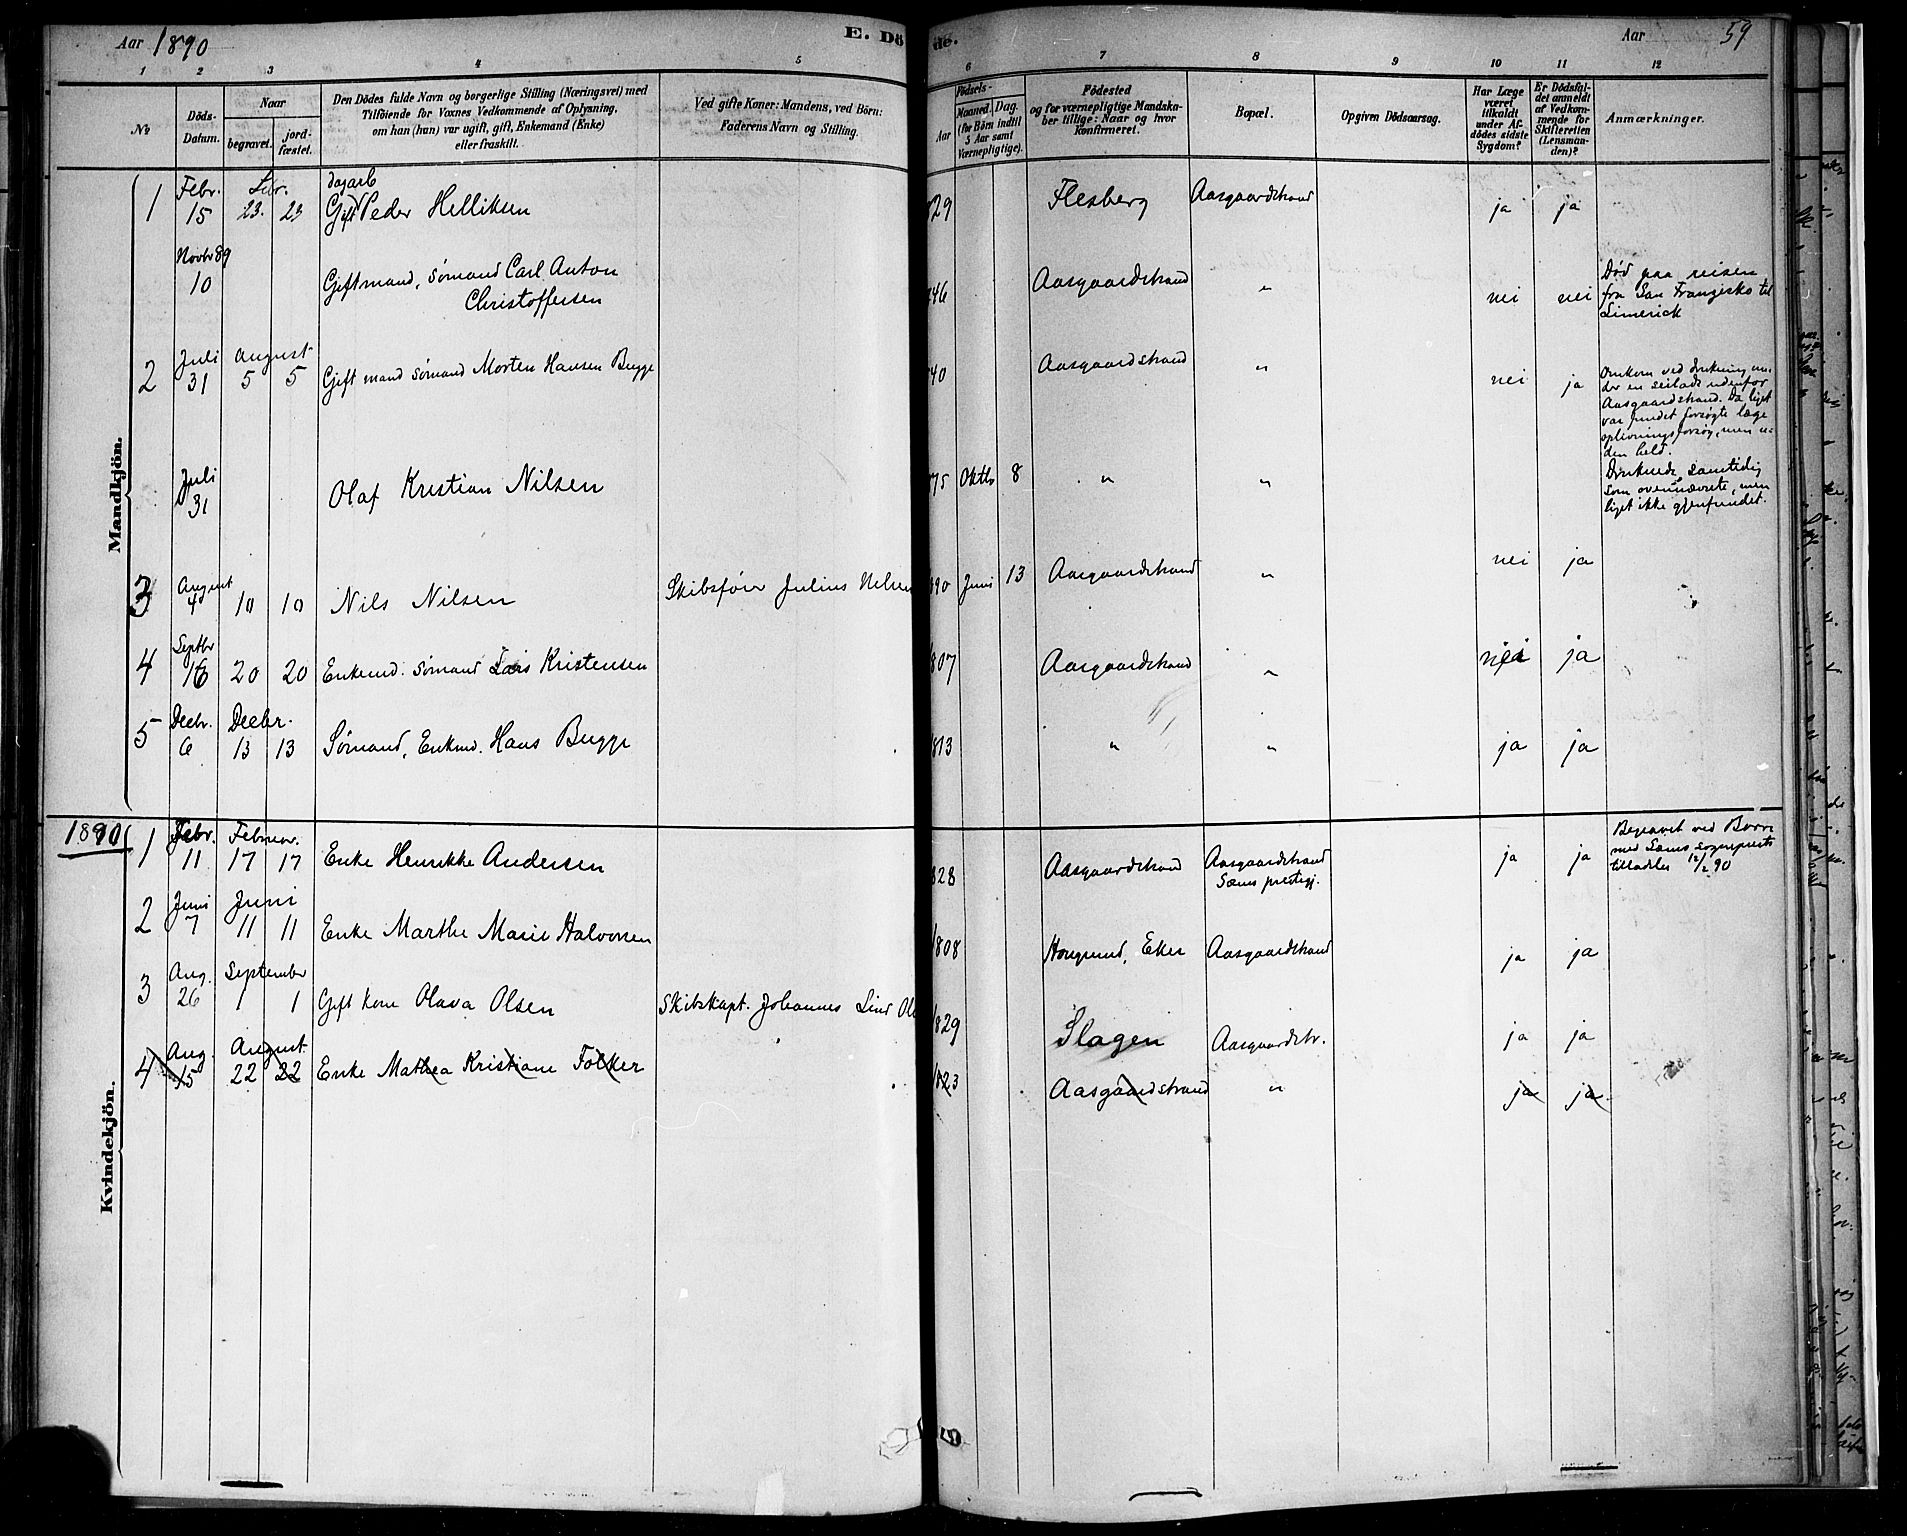 Aar 1890
E. Dö
de.
Aar
59
1 2 3 4 5
6 7 8 9 10 11 12
No
Döds-
Datum.
Naar
begravet.
jord-
fæstet.
Den Dödes fulde Navn og borgerlige Stilling (Næringsvei) med
Tilföiende for Voxnes Vedkommende af Oplysning,
om han (hun) var ugift, gift, Enkemand (Enke)
eller fraskilt.
Ved gifte Koner: Mandens, ved Börn:
Faderens Navn og Stilling.
Födsels-
Aar
Maaned. Dag.
(for Börn indtil
5 Aar samt
Værnepligtige).
Födested
og for værnepligtige Mandska-
ber tillige: Naar og hvor
konfirmeret.
Bopæl.
Opgiven Dödsaarsag.
Har Læge
været
tilkaldt
under Af-
dödes sidste
Sygdom?
Er Dödsfal-
det anmeldt
af Vedkom-
mende for
Skifteretten
(Lensman-
den)?
Anmærkninger.
Mandkjön.
1 Febr. 15 23. 23 dagarb
Gift Peder Helliksen 29 Flesberg Aasgaardstrand ja ja
Novbr 89
10 Giftmand, Sømand Carl Anton
Christoffersen 46 Aasgaardstrand " nei nei
Död paa reisen
fra San Franzisko til
Limerick
2 Juli 31 August 5 5 Gift mand sømand Morten Hansen Bugge 40 Aasgaardstrand " nei ja
Omkom ved drukning un-
der en seilads udenfor
Aasgaardstrand. Da liget
var fundet forsøgte læge
oplivningsforsøg, men u-
den held.
Juli 31 Olaf Kristian Nilsen 75 Oktbr 8 " "
Druknede samtidig
som ovennævnte, men
liget ikke gjenfundet.
3 August 4 10 10 Nils Nilsen Skibsfører Julius Nilsen 90 Juni 13 Aasgaardstrand " nei ja
4 Septbr 16 20 20 Enkemd. Sømand Lars Kristensen 807 Aasgaardstrand " nei ja
5 Decbr. 6 Decbr. 13 13 Sømand, Enkmd. Hans Bugge 813 " " ja ja
1890
Kvindekjön.
1 Febr. 11 Februar. 17 17 Enke Henrikke Andersen 828 Aasgaardstrand Aasgaardstrand
Sæms prestegj. ja ja
Begravet ved Borre
med Sæms sogneprests
tilladelse 12/2 90
2 Juni 7 Juni 11 11 Enke Marthe Marie Halvorsen 1808 Hougsund, Eker Aasgaardstrand ja ja
3 Aug. 26 September 1 1 Gift kone Olava Olsen Skibskapt. Johannes Lind Ol 1829 Slagen Aasgaardstr. ja ja
4 Aug. 15 August 22 22 Enke Mathea Kristiane Folker 1823 Aasgaardstrand " ja ja